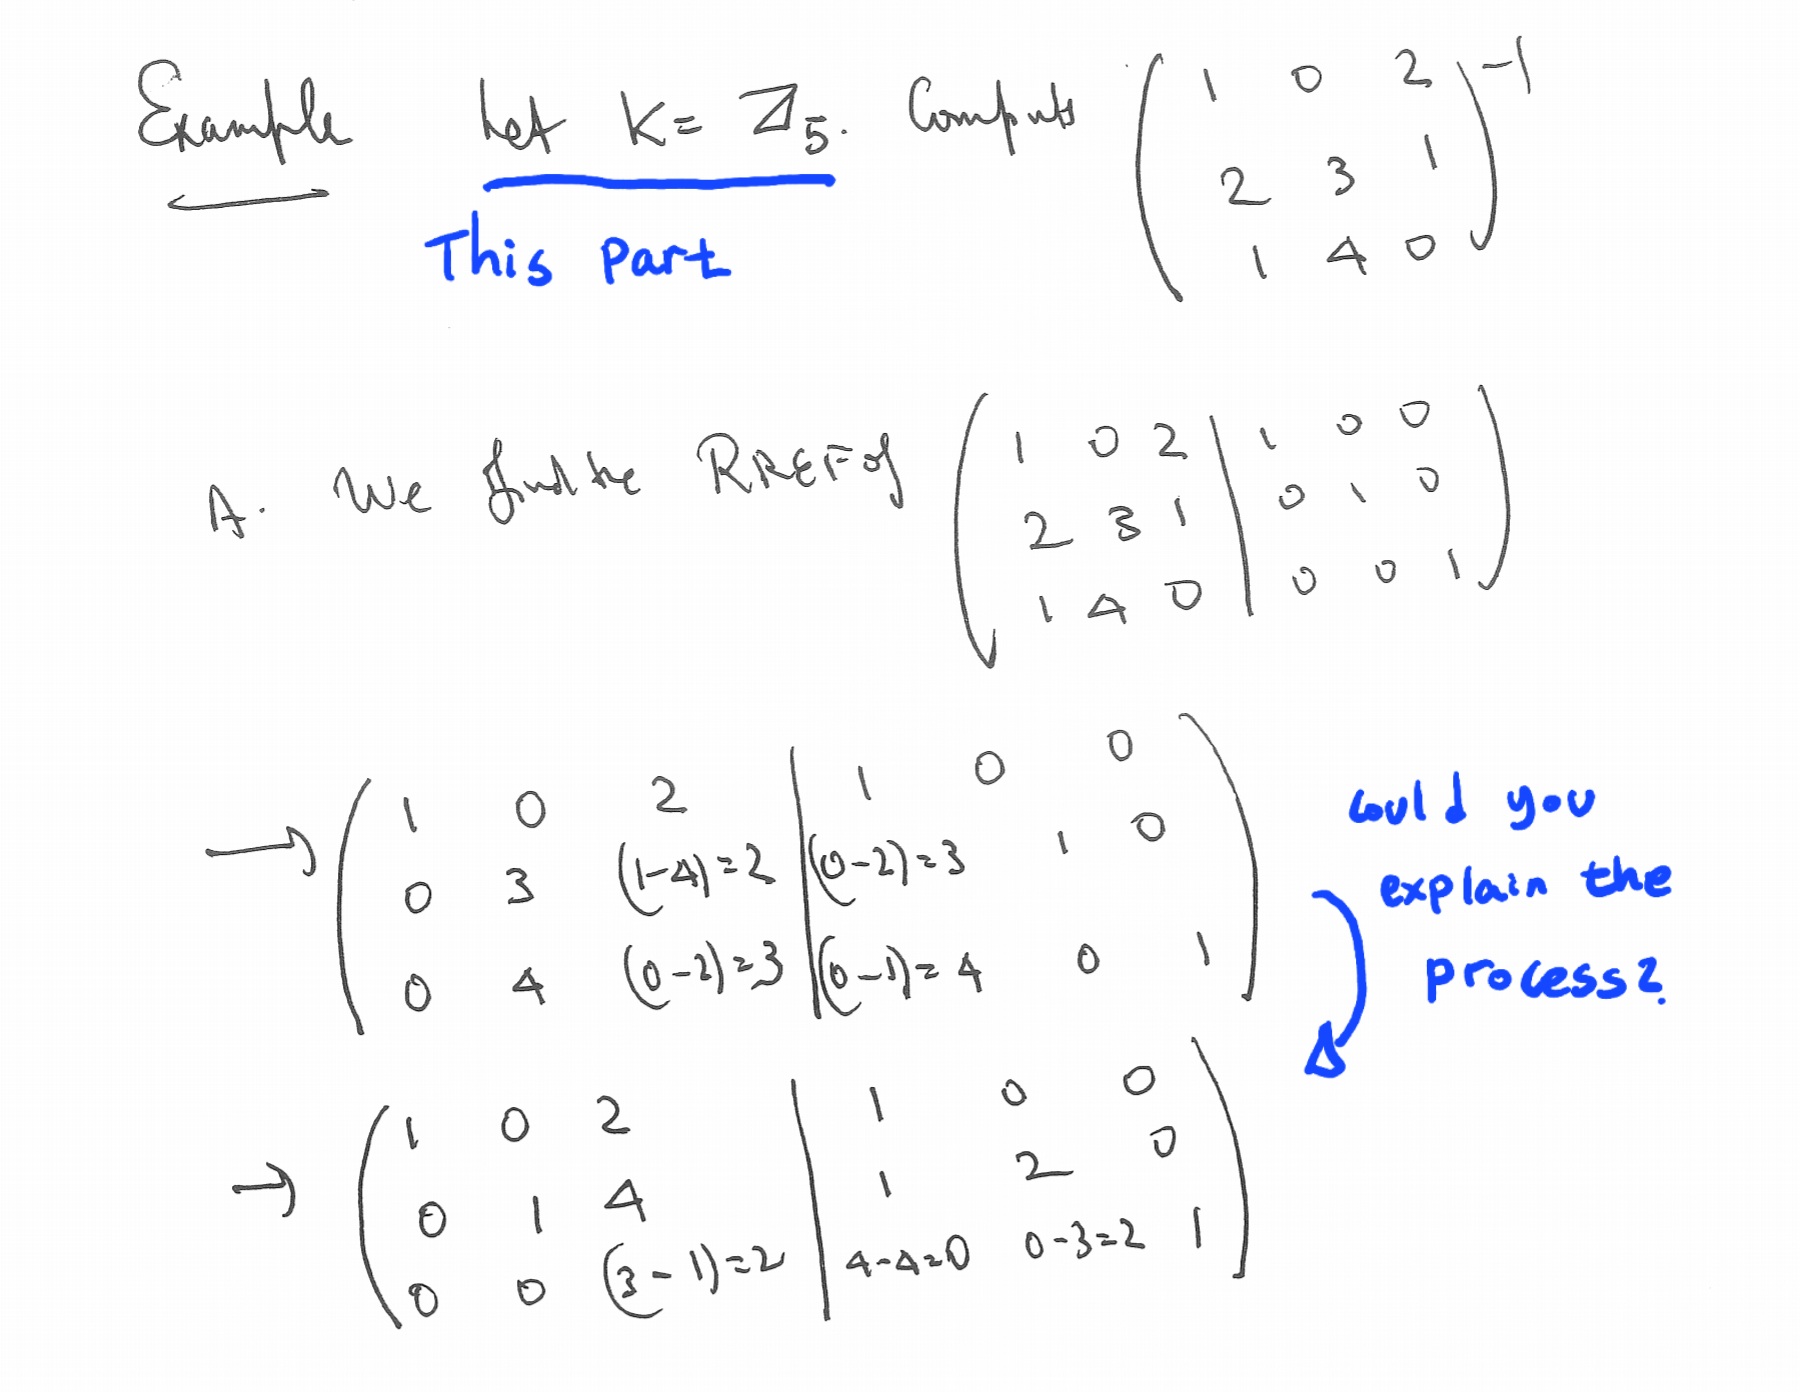 Example Let K = ℤ5. Compute ( 1 0 2 )-1
( 2 3 1 )
( 1 4 0 )
This part
A. We find the RREF of ( 1 0 2 | 1 0 0 )
( 2 3 1 | 0 1 0 )
( 1 4 0 | 0 0 1 )
→ ( 1 0 2 | 1 0 0 )
( 0 3 (1-4)=2 | (0-2)=3 1 0 )
( 0 4 (0-2)=3 | (0-1)=4 0 1 )
could you
explain the
process?
→ ( 1 0 2 | 1 0 0 )
( 0 1 4 | 1 2 0 )
( 0 0 (3-1)=2 | 4-4=0 0-3=2 1 )